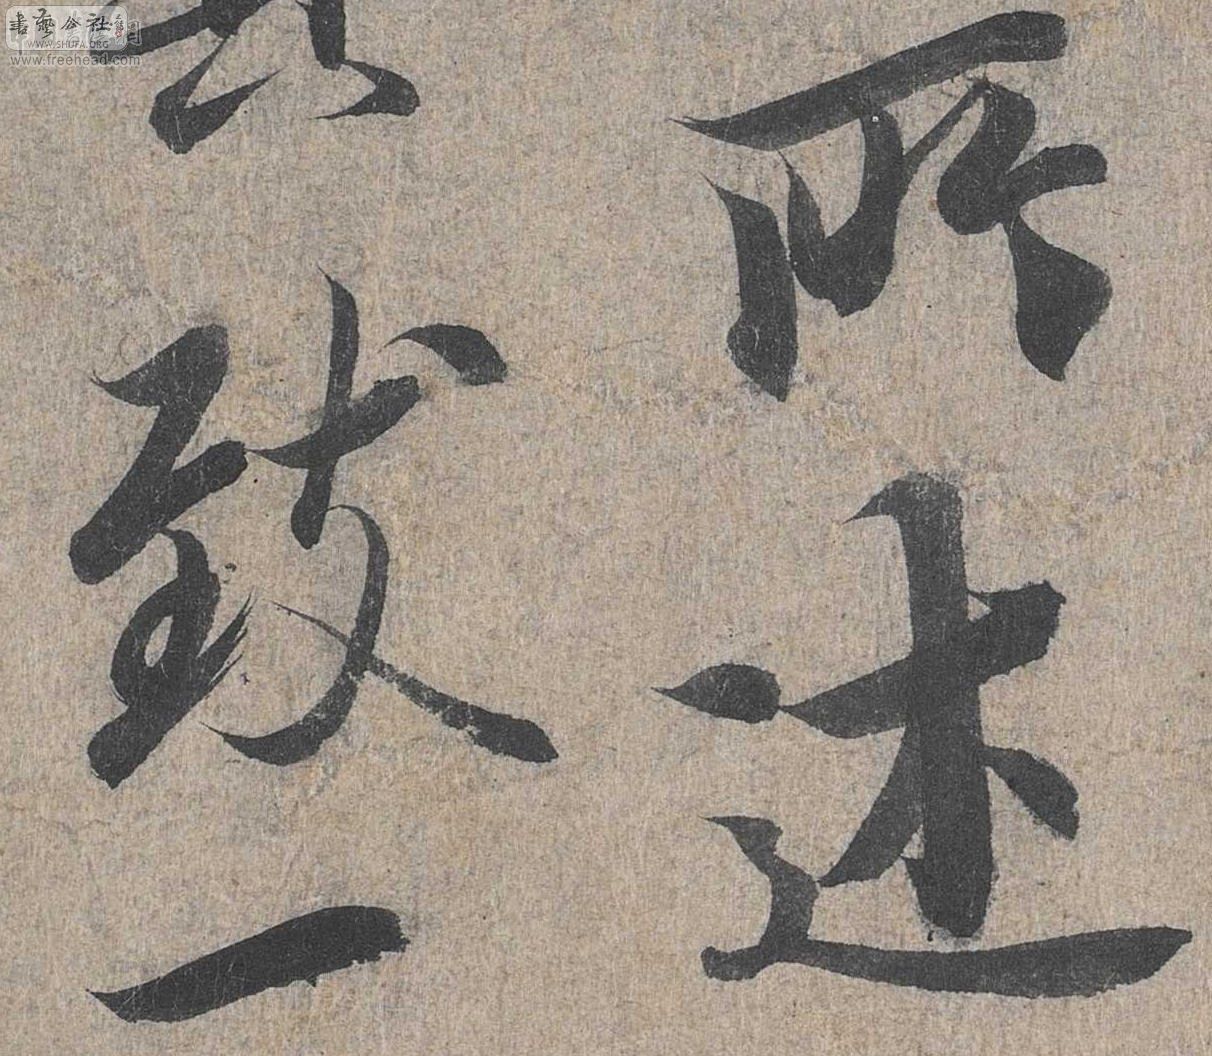 書藝公社
WWW.SHUFA.ORG
www.freehead.com
所述
其致一